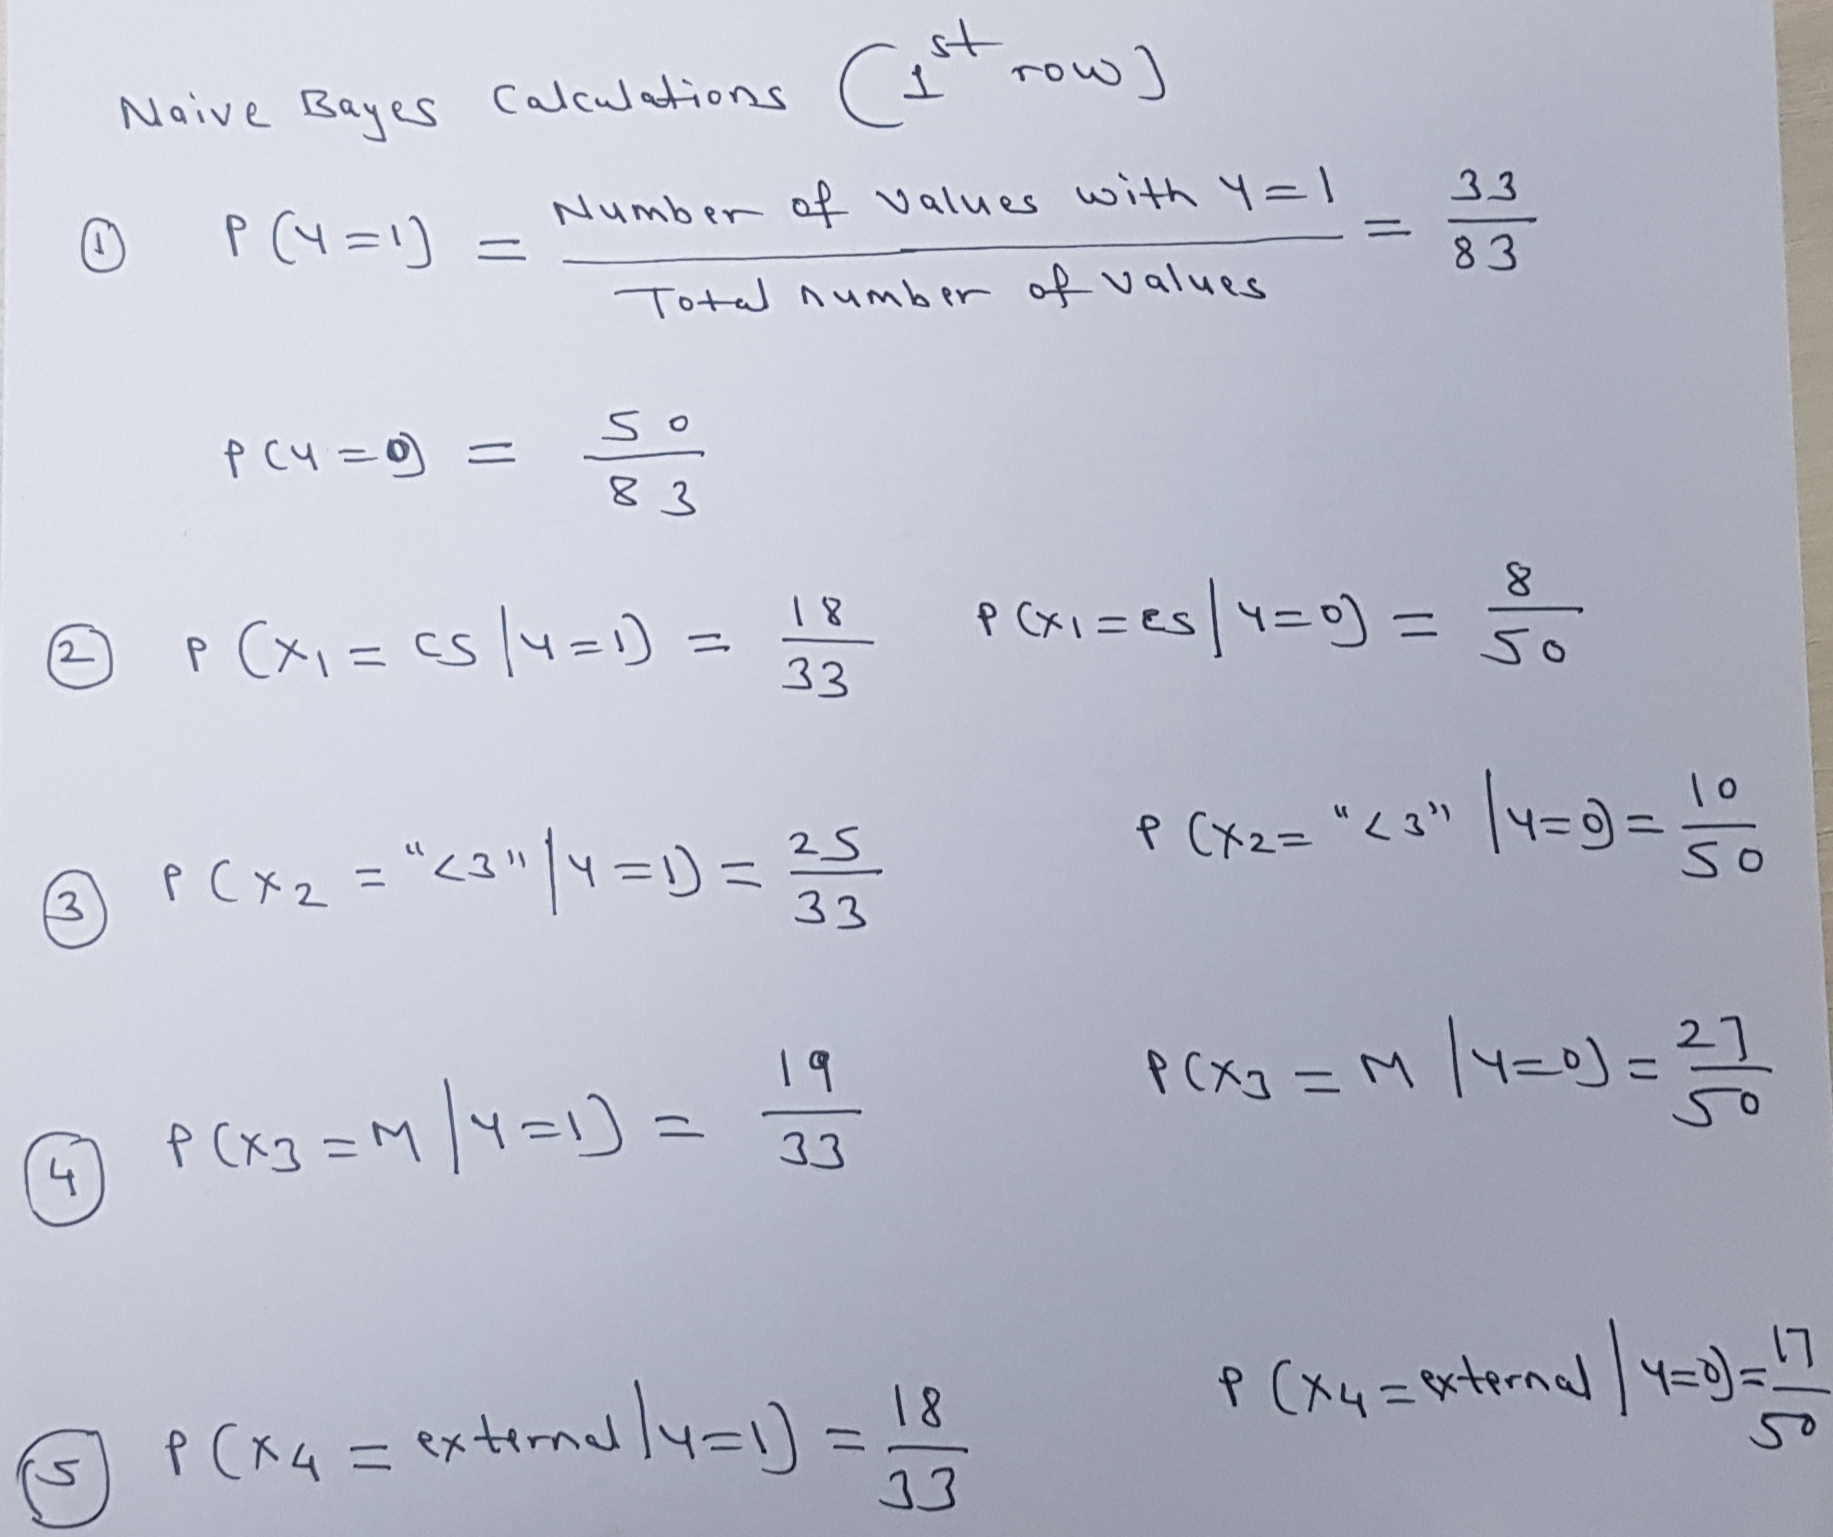 Naive Bayes Calculations (1st row)
① P(Y=1) = Number of values with Y=1 / Total number of values = 33/83
P(Y=0) = 50/83
② P(X1 = CS | Y=1) = 18/33 P(X1 = CS | Y=0) = 8/50
③ P(X2 = "<3" | Y=1) = 25/33 P(X2 = "<3" | Y=0) = 10/50
④ P(X3 = M | Y=1) = 19/33 P(X3 = M | Y=0) = 27/50
⑤ P(X4 = external | Y=1) = 18/33 P(X4 = external | Y=0) = 17/50